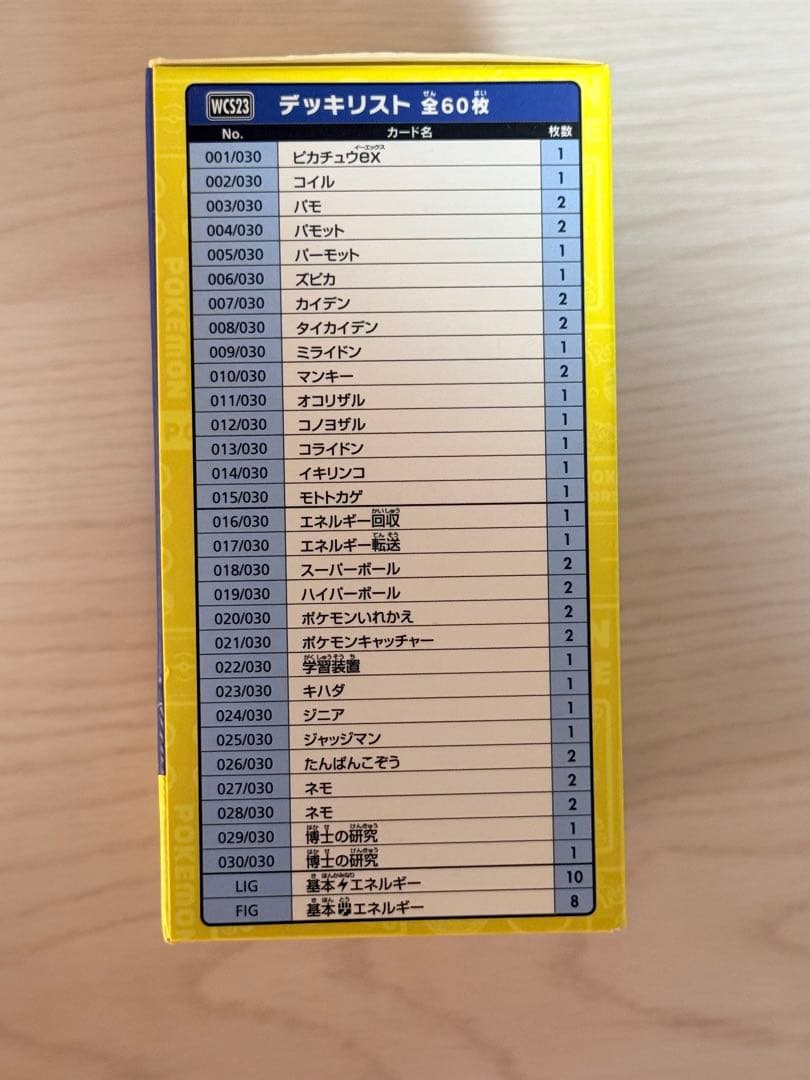 WCS23 デッキリスト 全60枚
No. カード名 枚数
001/030 ピカチュウex 1
002/030 コイル 1
003/030 パモ 2
004/030 パモット 2
005/030 パーモット 1
006/030 ズピカ 1
007/030 カイデン 2
008/030 タイカイデン 2
009/030 ミライドン 1
010/030 マンキー 2
011/030 オコリザル 1
012/030 コノヨザル 1
013/030 コライドン 1
014/030 イキリンコ 1
015/030 モトトカゲ 1
016/030 エネルギー回収 1
017/030 エネルギー転送 1
018/030 スーパーボール 2
019/030 ハイパーボール 2
020/030 ポケモンいれかえ 2
021/030 ポケモンキャッチャー 2
022/030 学習装置 1
023/030 キハダ 1
024/030 ジニア 1
025/030 ジャッジマン 1
026/030 たんぱんこぞう 2
027/030 ネモ 2
028/030 ネモ 2
029/030 博士の研究 1
030/030 博士の研究 1
LIG 基本エネルギー 10
FIG 基本エネルギー 8
POKEMON
POKEMON